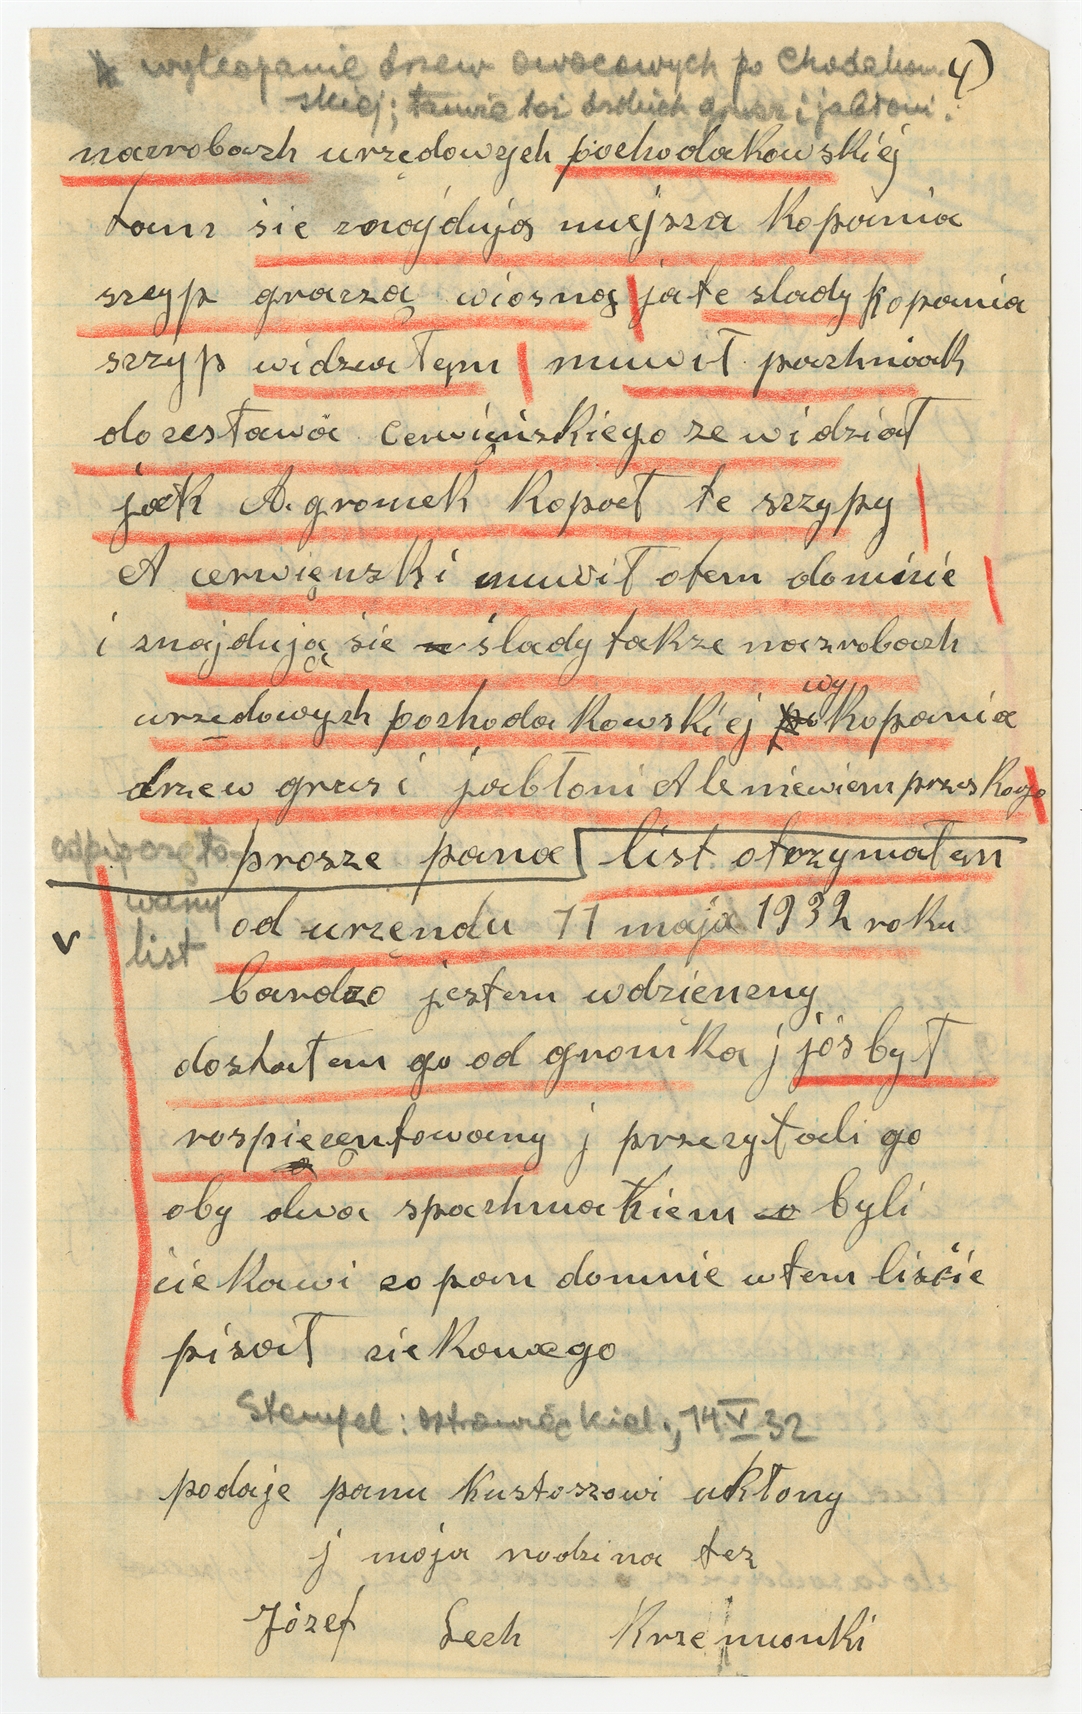 wykopanie drzew owocowych po Chodakow- 4)
skiej; tamże też dzikich grusz i jabłoni.
nazrobach urzędowych pochodakowskiéj
tam sie znajdują miejsza kopania
szzyp grazzą wiosnoą jate slady kopania
szzyp widzwałem muwił pachniak
dozestawa cerwińskiego ze widział
jak A. gromek kopoł te szzypy
A cerwięnski muwił otem dominie
i znajdują sie ślady takze nazrobach
urzędowych pochodakowskiej wykopania
drzew grus i jabłoni Ale niewiem przes kogo
odpieczęto- prosze pana list otrzymałem
wany
od urzendu 11 maja 1932 roku
list
bardzo jestem wdzieneny
dostałem go od gromka j jós był
rospiecentowany j przezytali go
oby dwa spachniakiem byli
ciekawi co pan domnie wtem liście
pisał ciekowego
Stempel: Ostrowiec kiel., 14 V 32
podaje panu Kustoszowi ukłony
j moja rodzina tez
Józef Lech Krzemionki